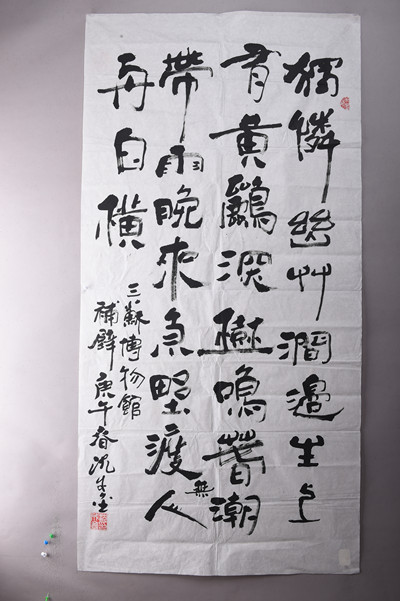 獨憐幽艸澗邊生上
有黃鸝深樹鳴春潮
帶雨晚來急野渡無人
舟自橫
三蘇博物館
補壁庚午春沈